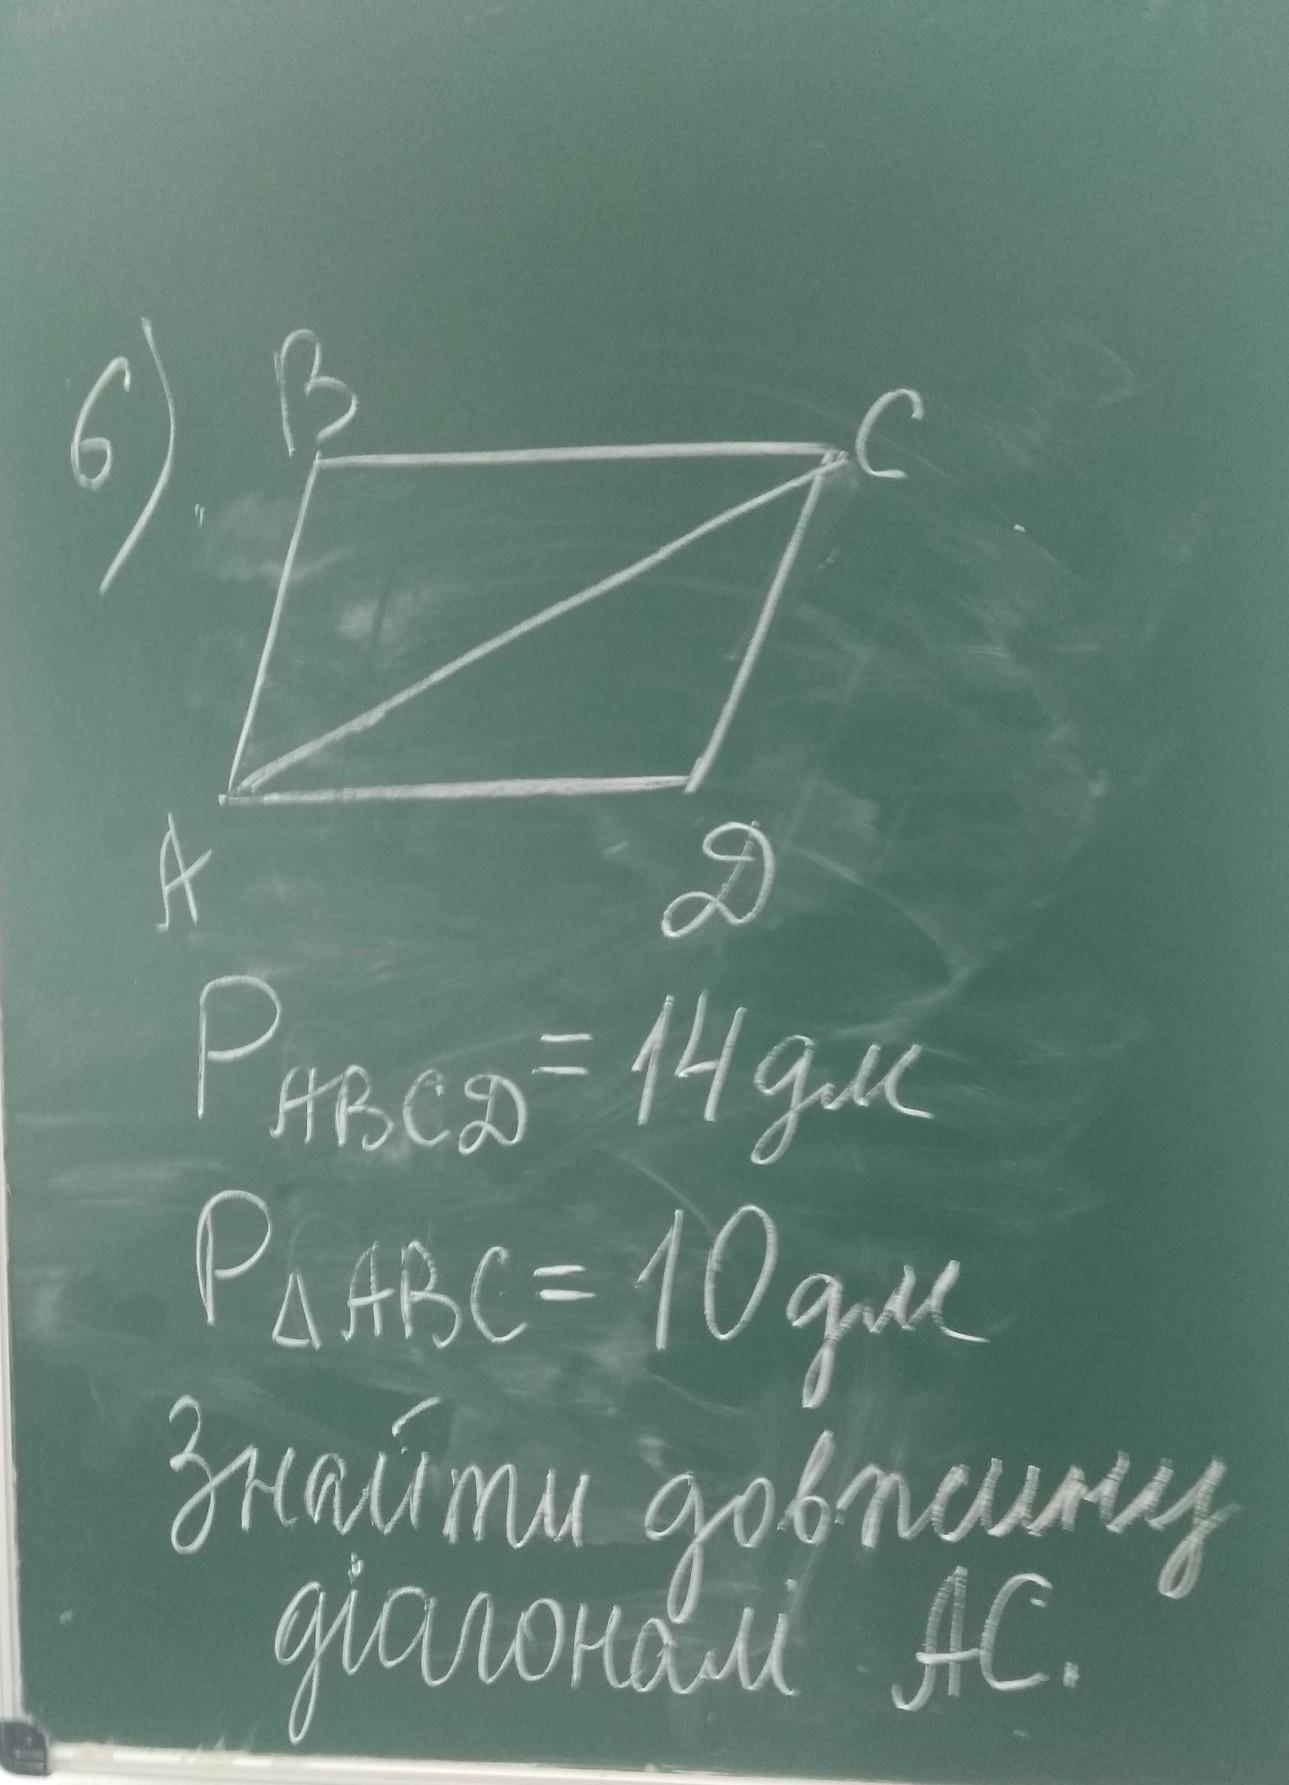 6)
B
C
A
D
P ABCD = 14 дм
P Δ ABC = 10 дм
Знайти довжину
діагоналі AC.